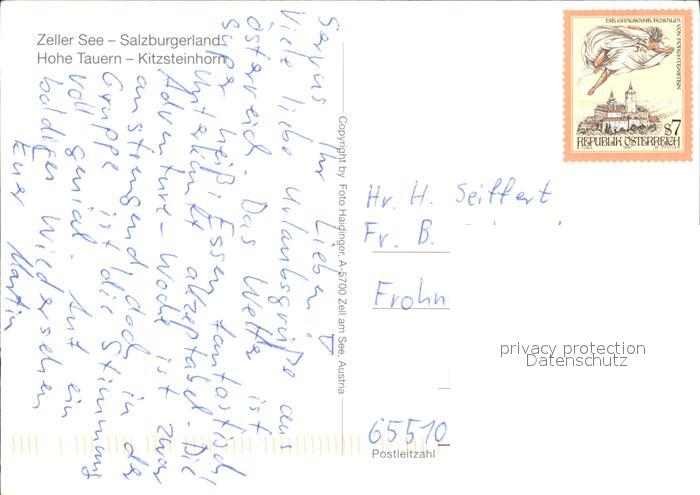 Zeller See – Salzburgerland
Hohe Tauern – Kitzsteinhorn
Servus Ihr Lieben!
Viele liebe Urlaubsgrüße aus
Österreich. Das Wetter ist
super heiß! Essen fantastisch
Unterkunft akzeptabel. Die
Adventure-Woche ist zwar
anstrengend, doch in der
Gruppe ist die Stimmung
voll genial. Auf ein
baldiges Wiedersehen
Euer Martin
Copyright by Foto Haidinger, A-5700 Zell am See, Austria
DIE GRAUSAME ROSALIA VON FORCHTENSTEIN
S7
REPUBLIK ÖSTERREICH
Hr. H. Seiffert
Fr. B.
Frohn
privacy protection
Datenschutz
65510
Postleitzahl